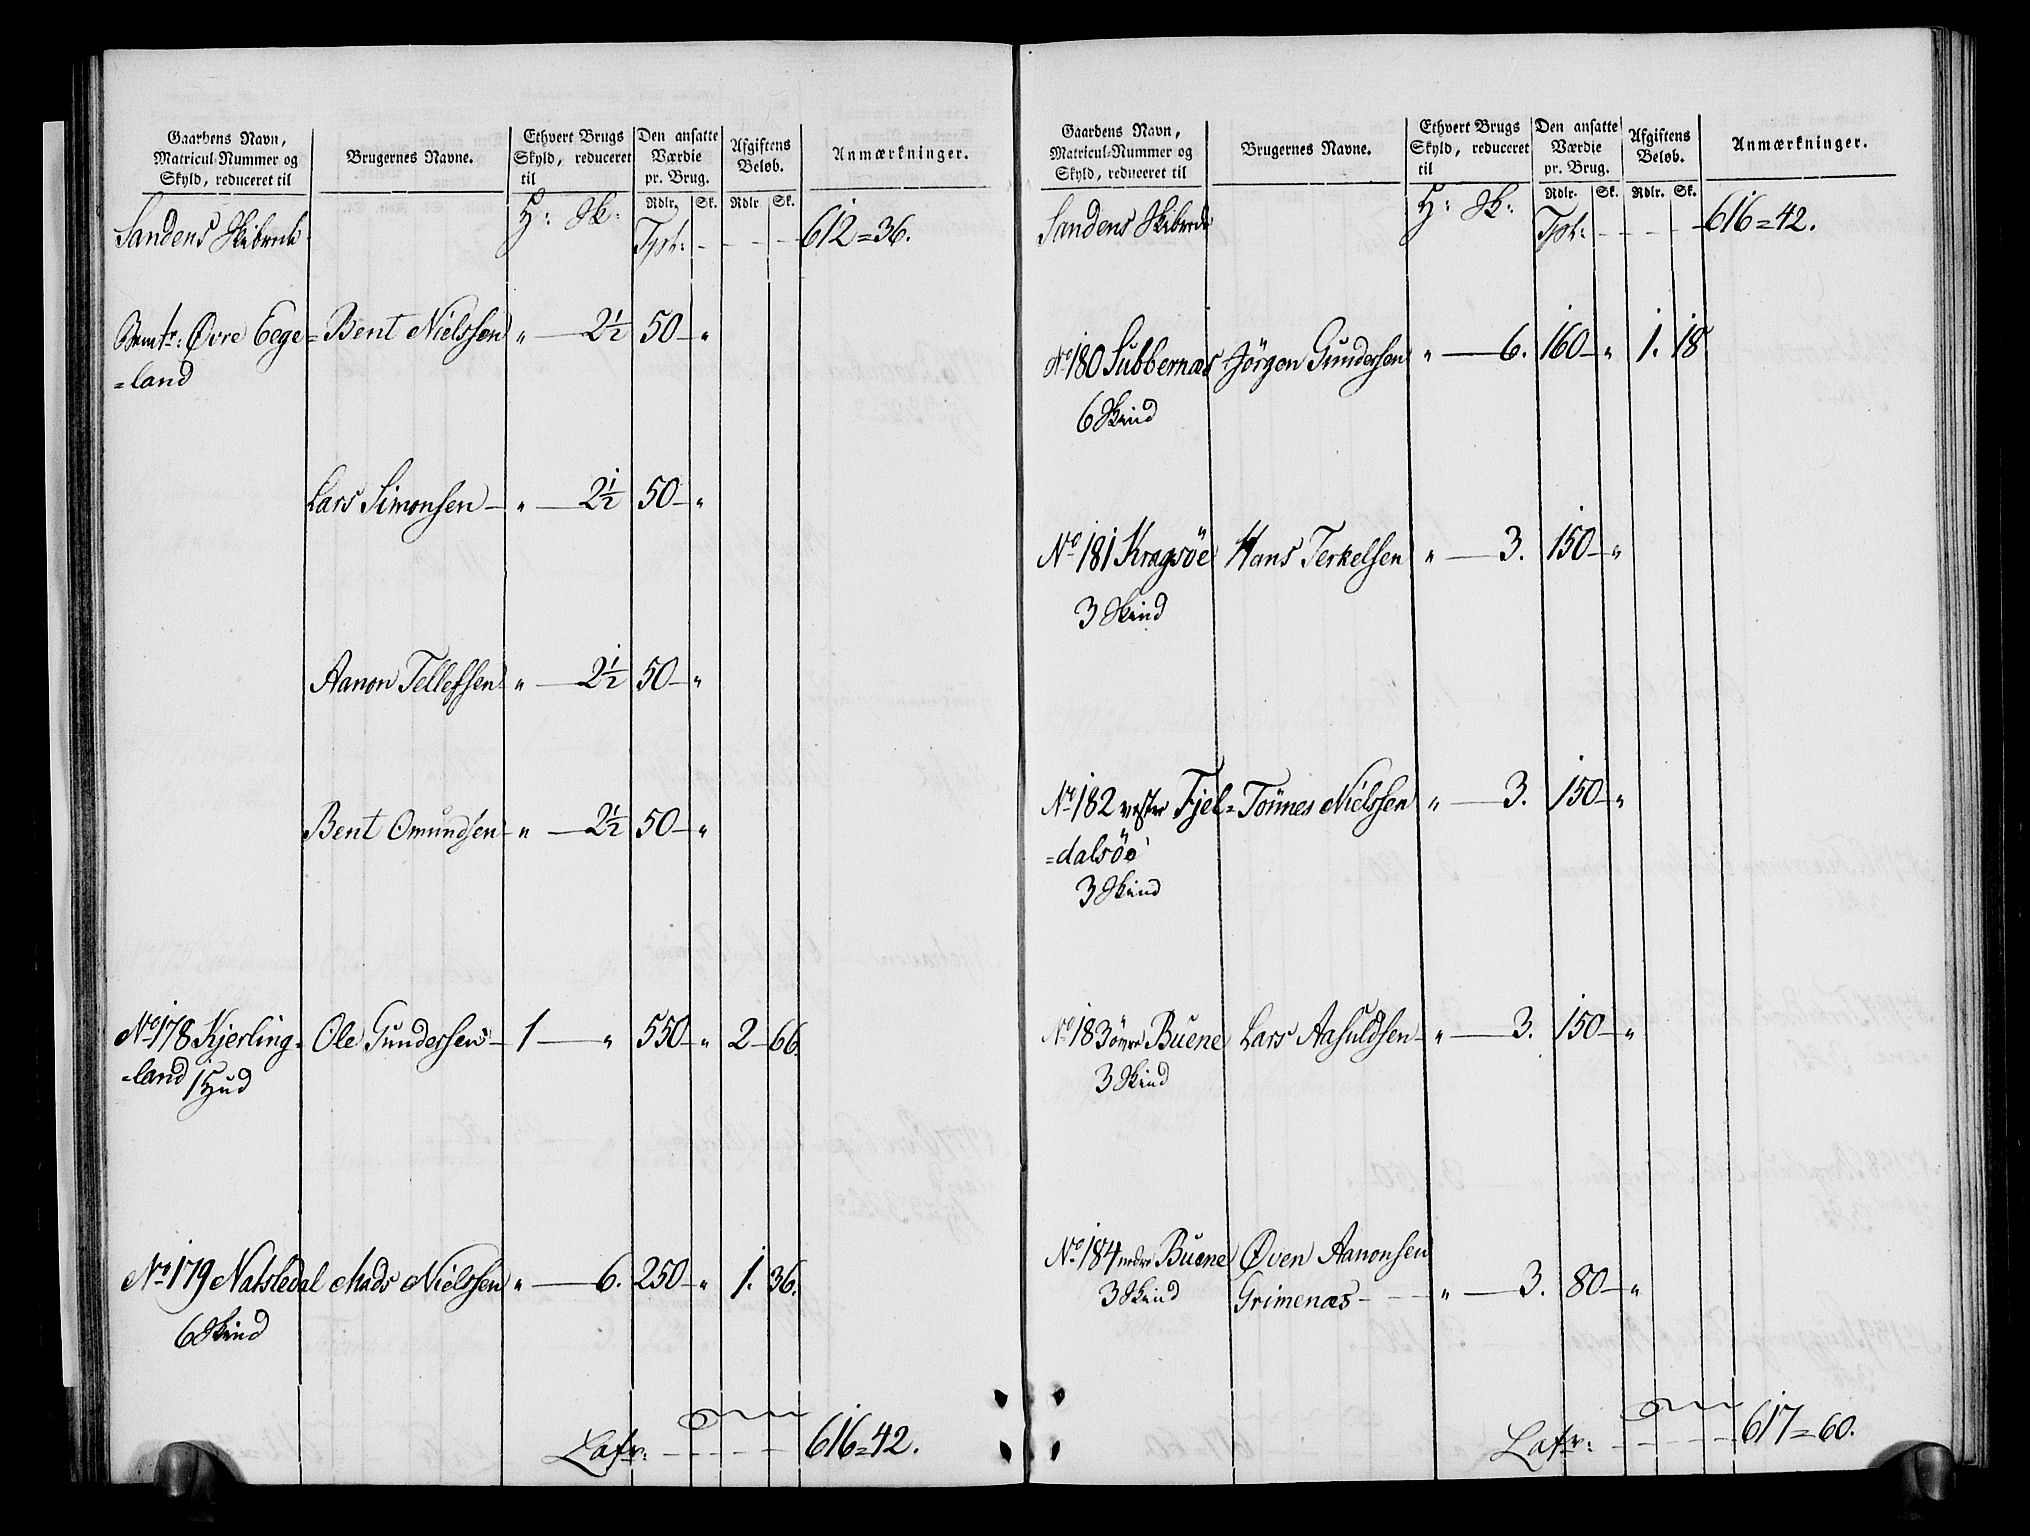 Gaardens Navn,
Matricul-Nummer og
Skyld, reduceret til
Brugernes Navne.
Ethvert Brugs
Skyld, reduceret
til
Den ansatte
Værdie
pr. Brug.
Afgiftens
Beløb.
Anmærkninger.
Rdlr. Sk. Rdlr. Sk.
Sandens Skibrede H: Sk: Tpt: - - - - 612=36.
Øvre Eege= Bent Nielssen " — 2½ 50 — "
=land
Lars Simonsen — " — 2½ 50 — "
Aanon Tellefsen " — 2½ 50 — "
Bent Omundsen " — 2½ 50 — "
No 178 Kjerling= Ole Gundersen — 1 — " 550 — " 2 — 66.
=land 1 Hud
No 179 Natsledal Mads Nielssen " — 6. 250 — " 1. 36.
6 Skind
Latr: - - - - 616=42.
Gaardens Navn,
Matricul-Nummer og
Skyld, reduceret til
Brugernes Navne.
Ethvert Brugs
Skyld, reduceret
til
Den ansatte
Værdie
pr. Brug.
Afgiftens
Beløb.
Anmærkninger.
Rdlr. Sk. Rdlr. Sk.
Sandens Skibrede H: Sk: Tpt: - - - - 616=42.
No 180 Subbernæs Jörgen Gundersen " — 6. 160 — " 1. 18
6 Skind
No 181 Kragsöe Hans Terkelsen " — 3. 150 — "
3 Skind
No 182 vester Fjel= Tönnes Nielssen " — 3. 150 — "
=dalsöe
3 Skind
No 183 övre Buene Lars Aasuldsen — " — 3. 150 — "
3 Skind
No 184 nedre Buene Øven Aanonsen
3 Skind Grimenæs - - - " — 3. 80 — "
Latr: - - - - 617=60.